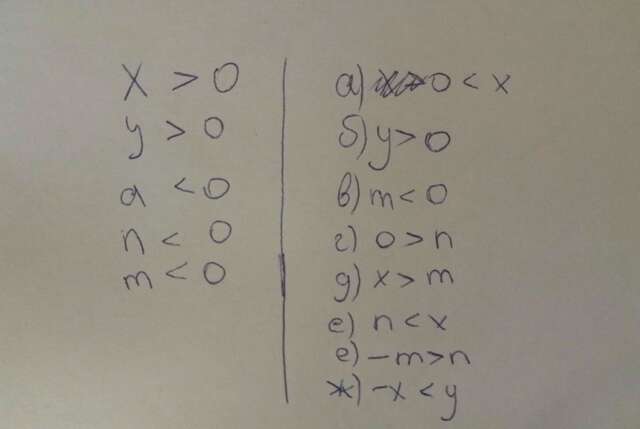 x > 0
y > 0
a < 0
n < 0
m < 0
а) 0 < x
б) y > 0
в) m < 0
г) 0 > n
д) x > m
е) n < x
е) -m > n
ж) -x < y